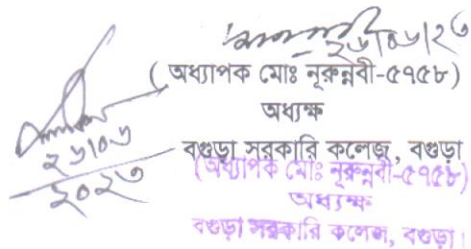 ২৬/০৬/২৩
(অধ্যাপক মোঃ নূরুন্নবী-৫৭৫৮)
অধ্যক্ষ
বগুড়া সরকারি কলেজ, বগুড়া
২৬/০৬
২০২৩
(অধ্যাপক মোঃ নূরুন্নবী-৫৭৫৮)
অধ্যক্ষ
বগুড়া সরকারি কলেজ, বগুড়া।